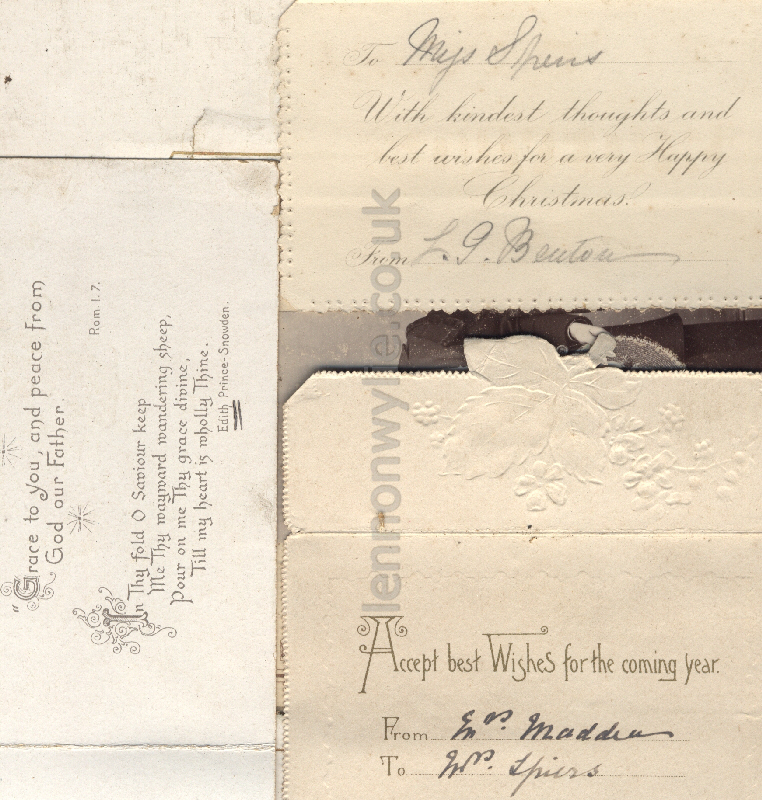 To Miss Speirs
With kindest thoughts and
best wishes for a very Happy
Christmas.
From L. G. Benton
"Grace to you, and peace from
God our Father.
Rom. 1. 7.
In Thy fold O Saviour keep
Me Thy wayward wandering sheep,
Pour on me Thy grace divine,
Till my heart is wholly Thine.
Edith Prince-Snowden.
Accept best Wishes for the coming year.
From Mrs. Madden
To Mrs. Spiers
lennonwylie.co.uk